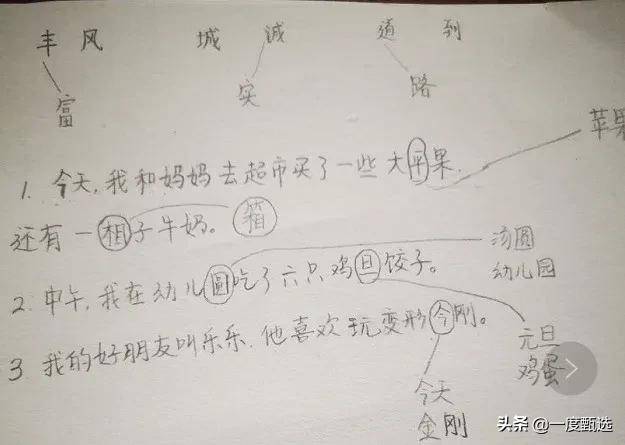 丰 风 城 诚 道 到
富 实 路
苹果
1. 今天,我和妈妈去超市买了一些大平果.
还有一相子牛奶。 箱
汤圆
幼儿园
2. 中午,我在幼儿圆吃了六只鸡旦饺子。
3 我的好朋友叫乐乐.他喜欢玩变形今刚。
元旦
鸡蛋
今天
金刚
头条 @一度甄选